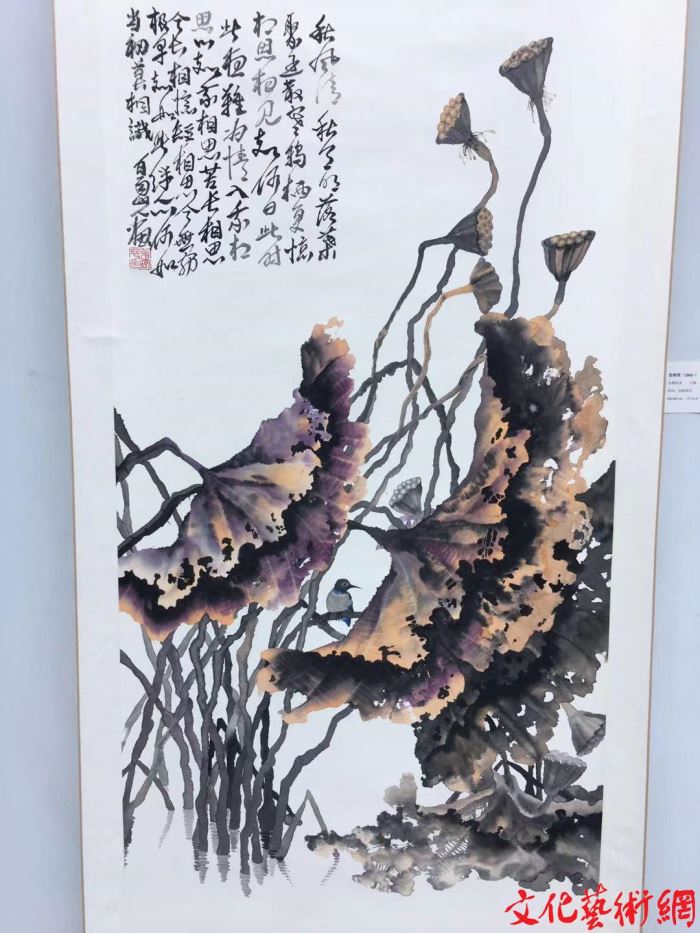 秋风清秋月明落葉
聚还散寒鸦栖复惊
相思相见知何日此时
此夜難为情入我相
思门知我相思苦长相思
兮长相憶短相思兮無穷
极早知如此绊人心何如
当初莫相識
文化藝術網